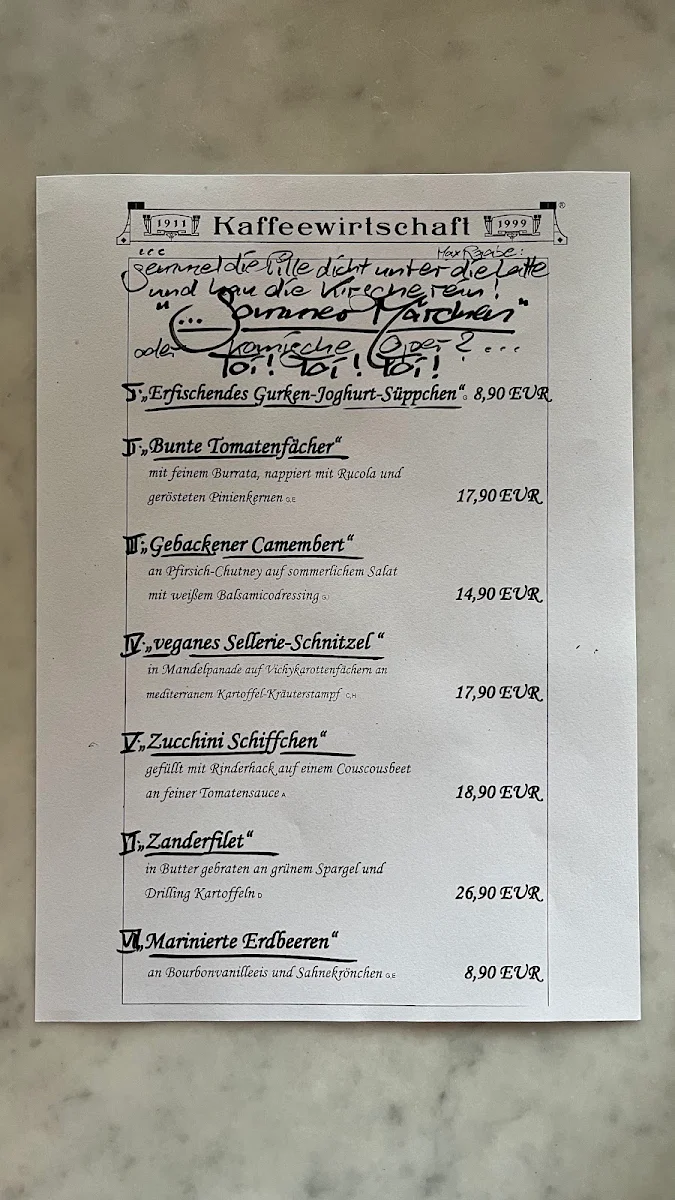 1911 Kaffeewirtschaft 1999 ®
... Max Raabe:
die Pille dicht unter die Latte
und hau die Kirsche rein!
"... Sommer Märchen"
oder komische Oper? ...
Toi! Toi! Toi!
I. „Erfischendes Gurken-Joghurt-Süppchen“ G 8,90 EUR
II. „Bunte Tomatenfächer“
mit feinem Burrata, nappiert mit Rucola und
gerösteten Pinienkernen G,E 17,90 EUR
III. „Gebackener Camembert“
an Pfirsich-Chutney auf sommerlichem Salat
mit weißem Balsamicodressing 14,90 EUR
IV. „veganes Sellerie-Schnitzel “
in Mandelpanade auf Vichykarottenfächern an
mediterranem Kartoffel-Kräuterstampf C,H 17,90 EUR
V. „Zucchini Schiffchen“
gefüllt mit Rinderhack auf einem Couscousbeet
an feiner Tomatensauce A 18,90 EUR
VI. „Zanderfilet“
in Butter gebraten an grünem Spargel und
Drilling Kartoffeln D 26,90 EUR
VII. „Marinierte Erdbeeren“
an Bourbonvanilleeis und Sahnekrönchen G,E 8,90 EUR